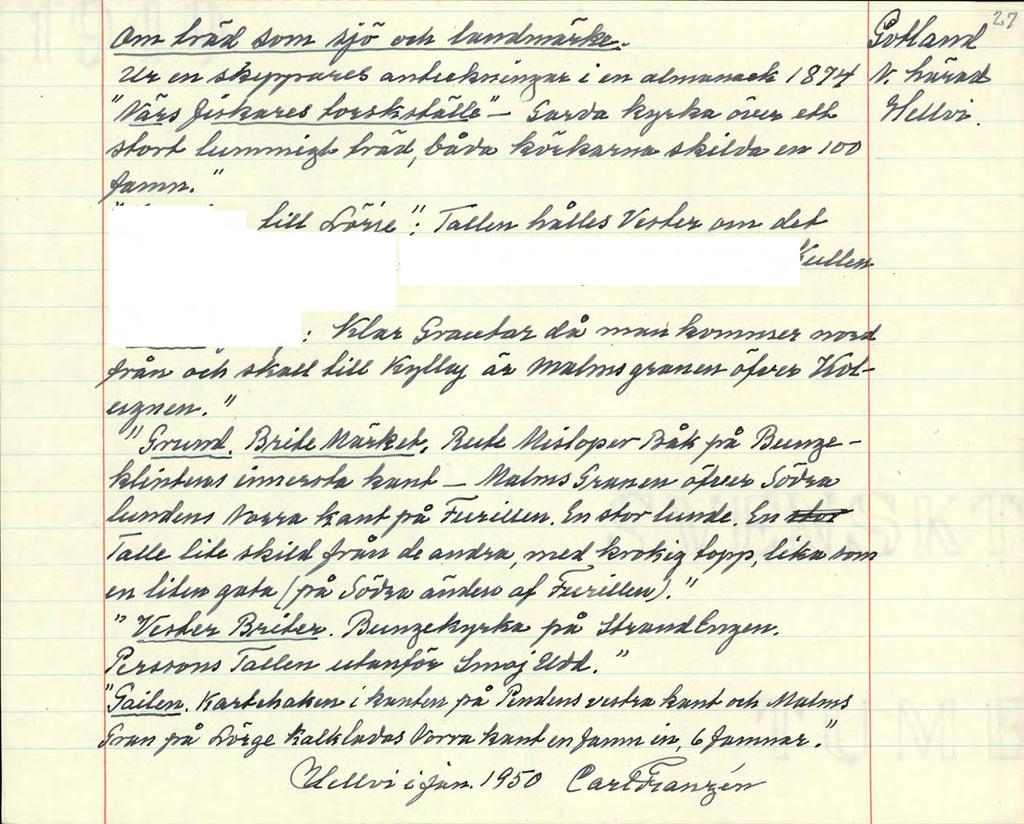 27
Gotland
N. härad
Hellvi.
Om träd som sjö och landmärke.
Ur en skeppares anteckningar i en almanack 1874
"Närs fiskares torskställe" – Garda kyrka över ett
stort lummigt träd, båda körkarna skilda en 100
famn."
till Lörje": Tallen hålles Vester om det
Kullen
: Klar Grautar då man kommer nord
från och skall till Kyllaj är Malms granen öfver Kol-
ugnen."
"Grund. Brite Märket. Rute Misloper Båk på Bunge-
klintens innersta kant – Malms Granen öfver Södra
lundens Norra kant på Furillen. En stor lunde. En stor
Talle lite skild från de andra, med krokig topp, lika som
en liten gata (på Södra änden af Furillen)."
"Vester Briter. Bungekyrka på StrandEngen.
Perssons Tallen utanför Smöj Udd."
"Gailen. Kartehaken i kanten på Pindens vestra kant och Malms
Gran på Lörge Kalkladas Norra kant en famn in, 6 famnar."
Hellvi i jan. 1950 Carl Franzén